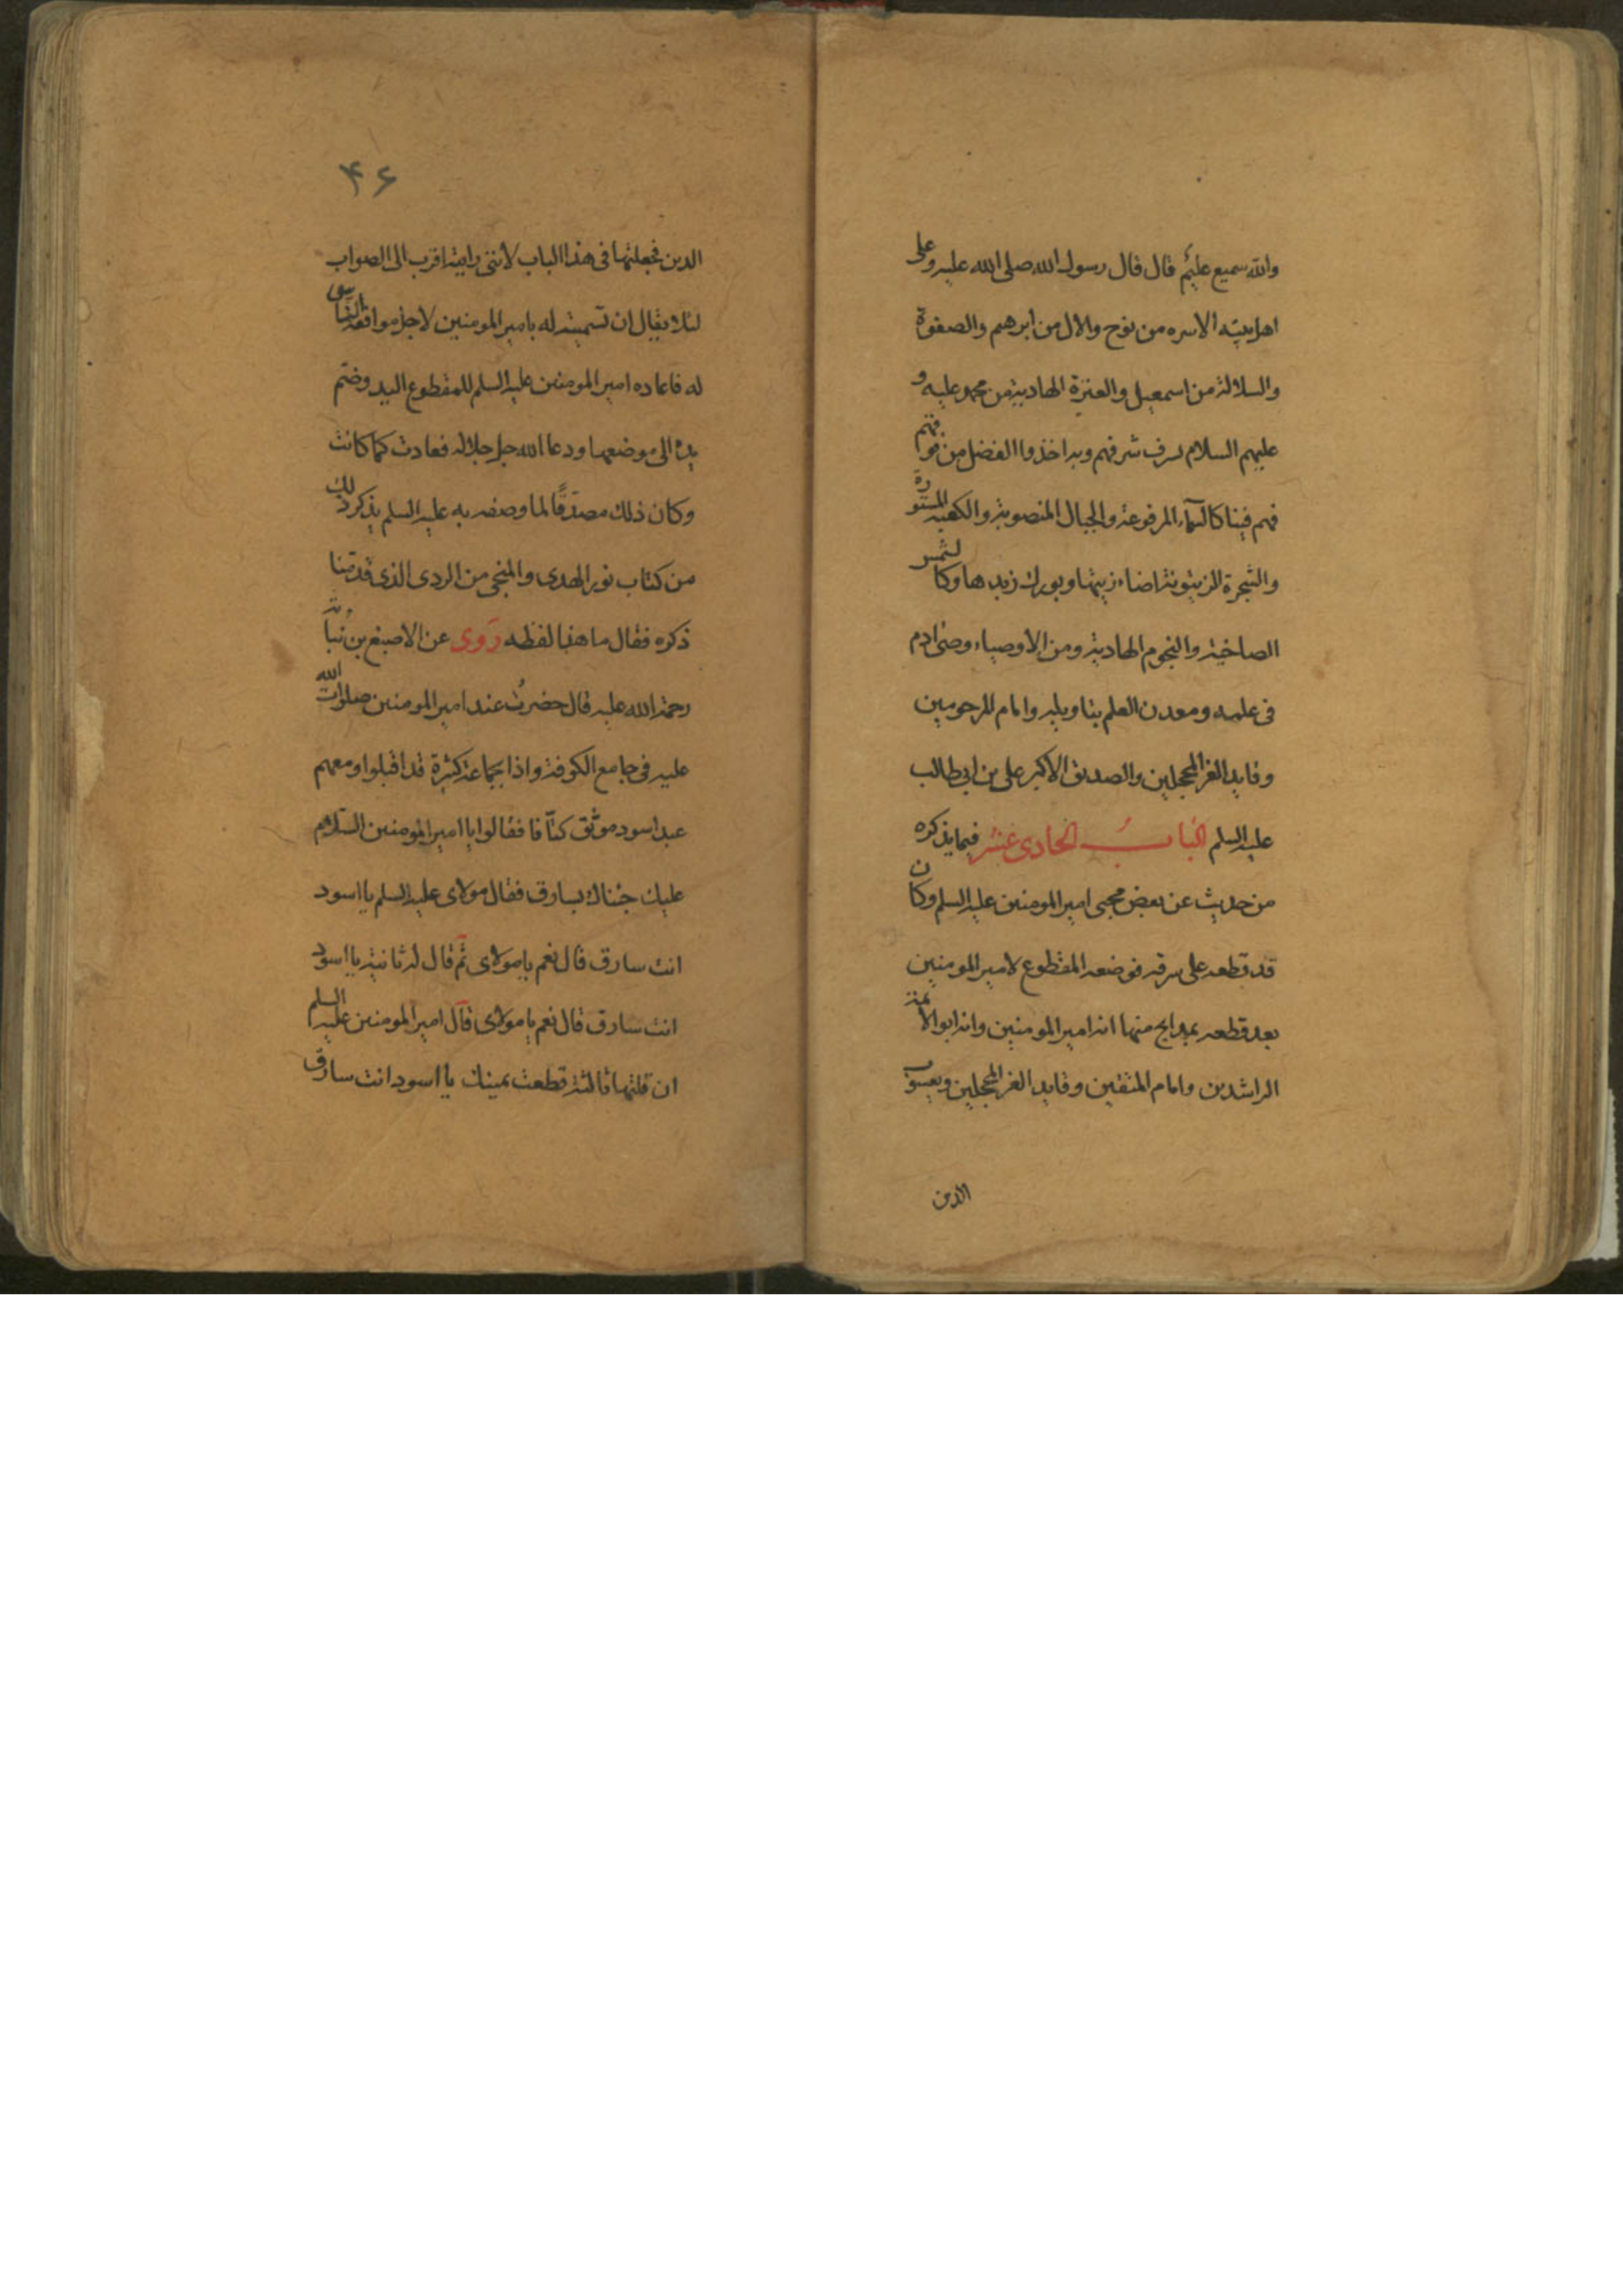 والله سميع عليم قال قال رسول الله صلى الله عليه وعلى
اهل بيته الاسره من نوح والال من ابرهيم والصفوة
والسلالة من اسمعيل والعترة الهادية من محمد عليه و
عليهم السلام لسرف شرفهم وبه اخذوا الفضل من قومهم
فهم فينا كالسماء المرفوعة والجبال المنصوبة والكعبة المستورة
والشجرة الزيتونة اضاء زيتها وبورك زبدها وكالشمس
الضاخية والنجوم الهادية ومن الاوصياء وصى ادم
فى علمه ومعدن العلم بتاويله وامام المرحومين
وقايد الغر المحجلين والصديق الاكبر على بن ابى طالب
عليه السلم الباب الحادى عشر فيما يذكره
من حديث عن بعض محبى امير المومنين عليه السلم وكان
قد قطعه على سرقه فوضعه المقطوع لامير المومنين
بعد قطعه بمدايح منها انه امير المومنين وانه ابو الائمة
الراشدين وامام المتقين وقايد الغر المحجلين ويعسوب
الدين
۴۶
الدين فجعلتها فى هذا الباب لاننى رايته اقرب الى الصواب
لئلا يقال ان تسميته له بامير المومنين لاجل موافقة
له فاعاده امير المومنين عليه السلم للمقطوع اليد وضم
يده الى موضعها ودعا الله جل جلاله فعادت كما كانت
وكان ذلك مصدقا لما وصفه به عليه السلم يذكر ذلك
من كتاب نور الهدى والمنجى من الردى الذى قدمنا
ذكره فقال ما هذا لفظه روى عن الاصبغ بن نباته
رحمة الله عليه قال حضرت عند امير المومنين صلوات الله
عليه فى جامع الكوفة واذا بجماعة كثيرة قد اقبلوا ومعهم
عبد اسود موثق كتافا فقالوا يا امير المومنين السلام
عليك جئناك بسارق فقال مولاى عليه السلم يا اسود
انت سارق قال نعم يا مولاى ثم قال له ثانية يا اسود
انت سارق قال نعم يا مولاى قال امير المومنين عليه السلم
ان قلتها ثالثة قطعت يمينك يا اسود انت سارق